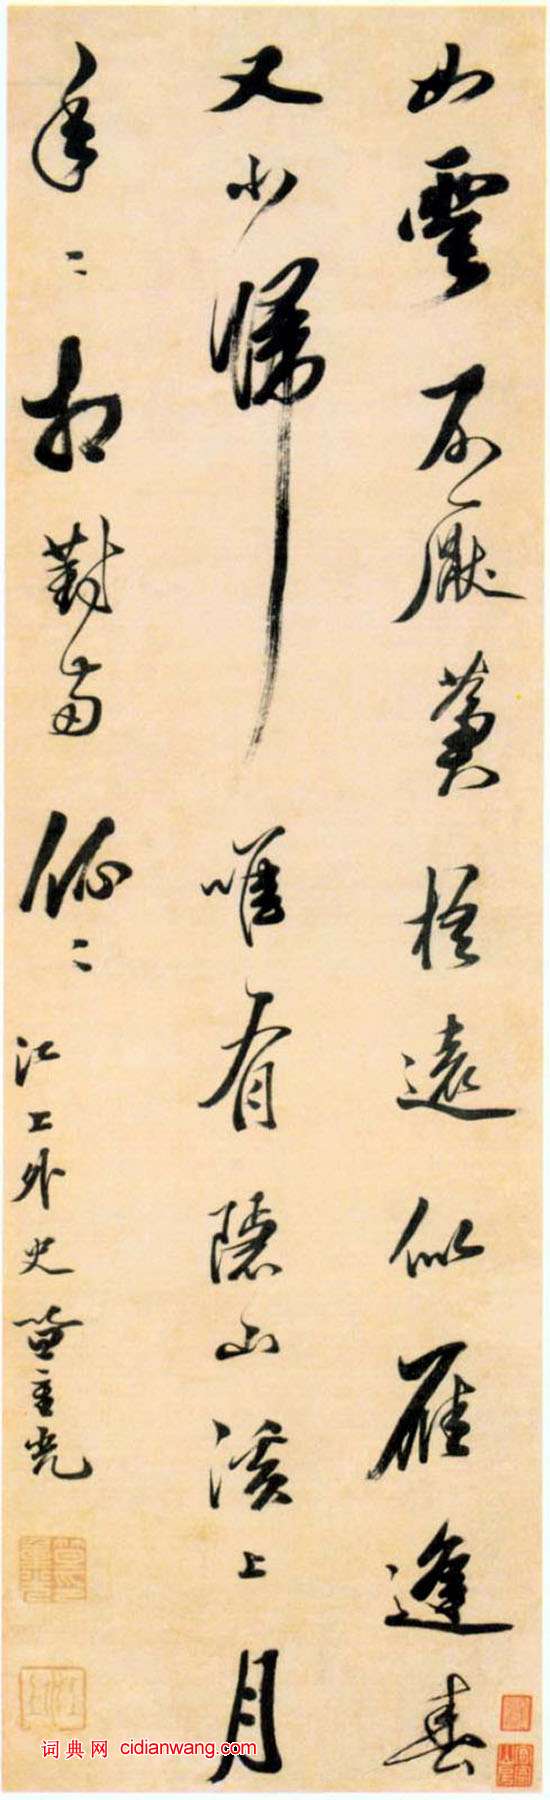 如雲不厭蒼梧遠似雁逢春
又北歸唯有隱山溪上月
年〻相對兩依〻
江上外史笪重光
词典网 cidianwang.com